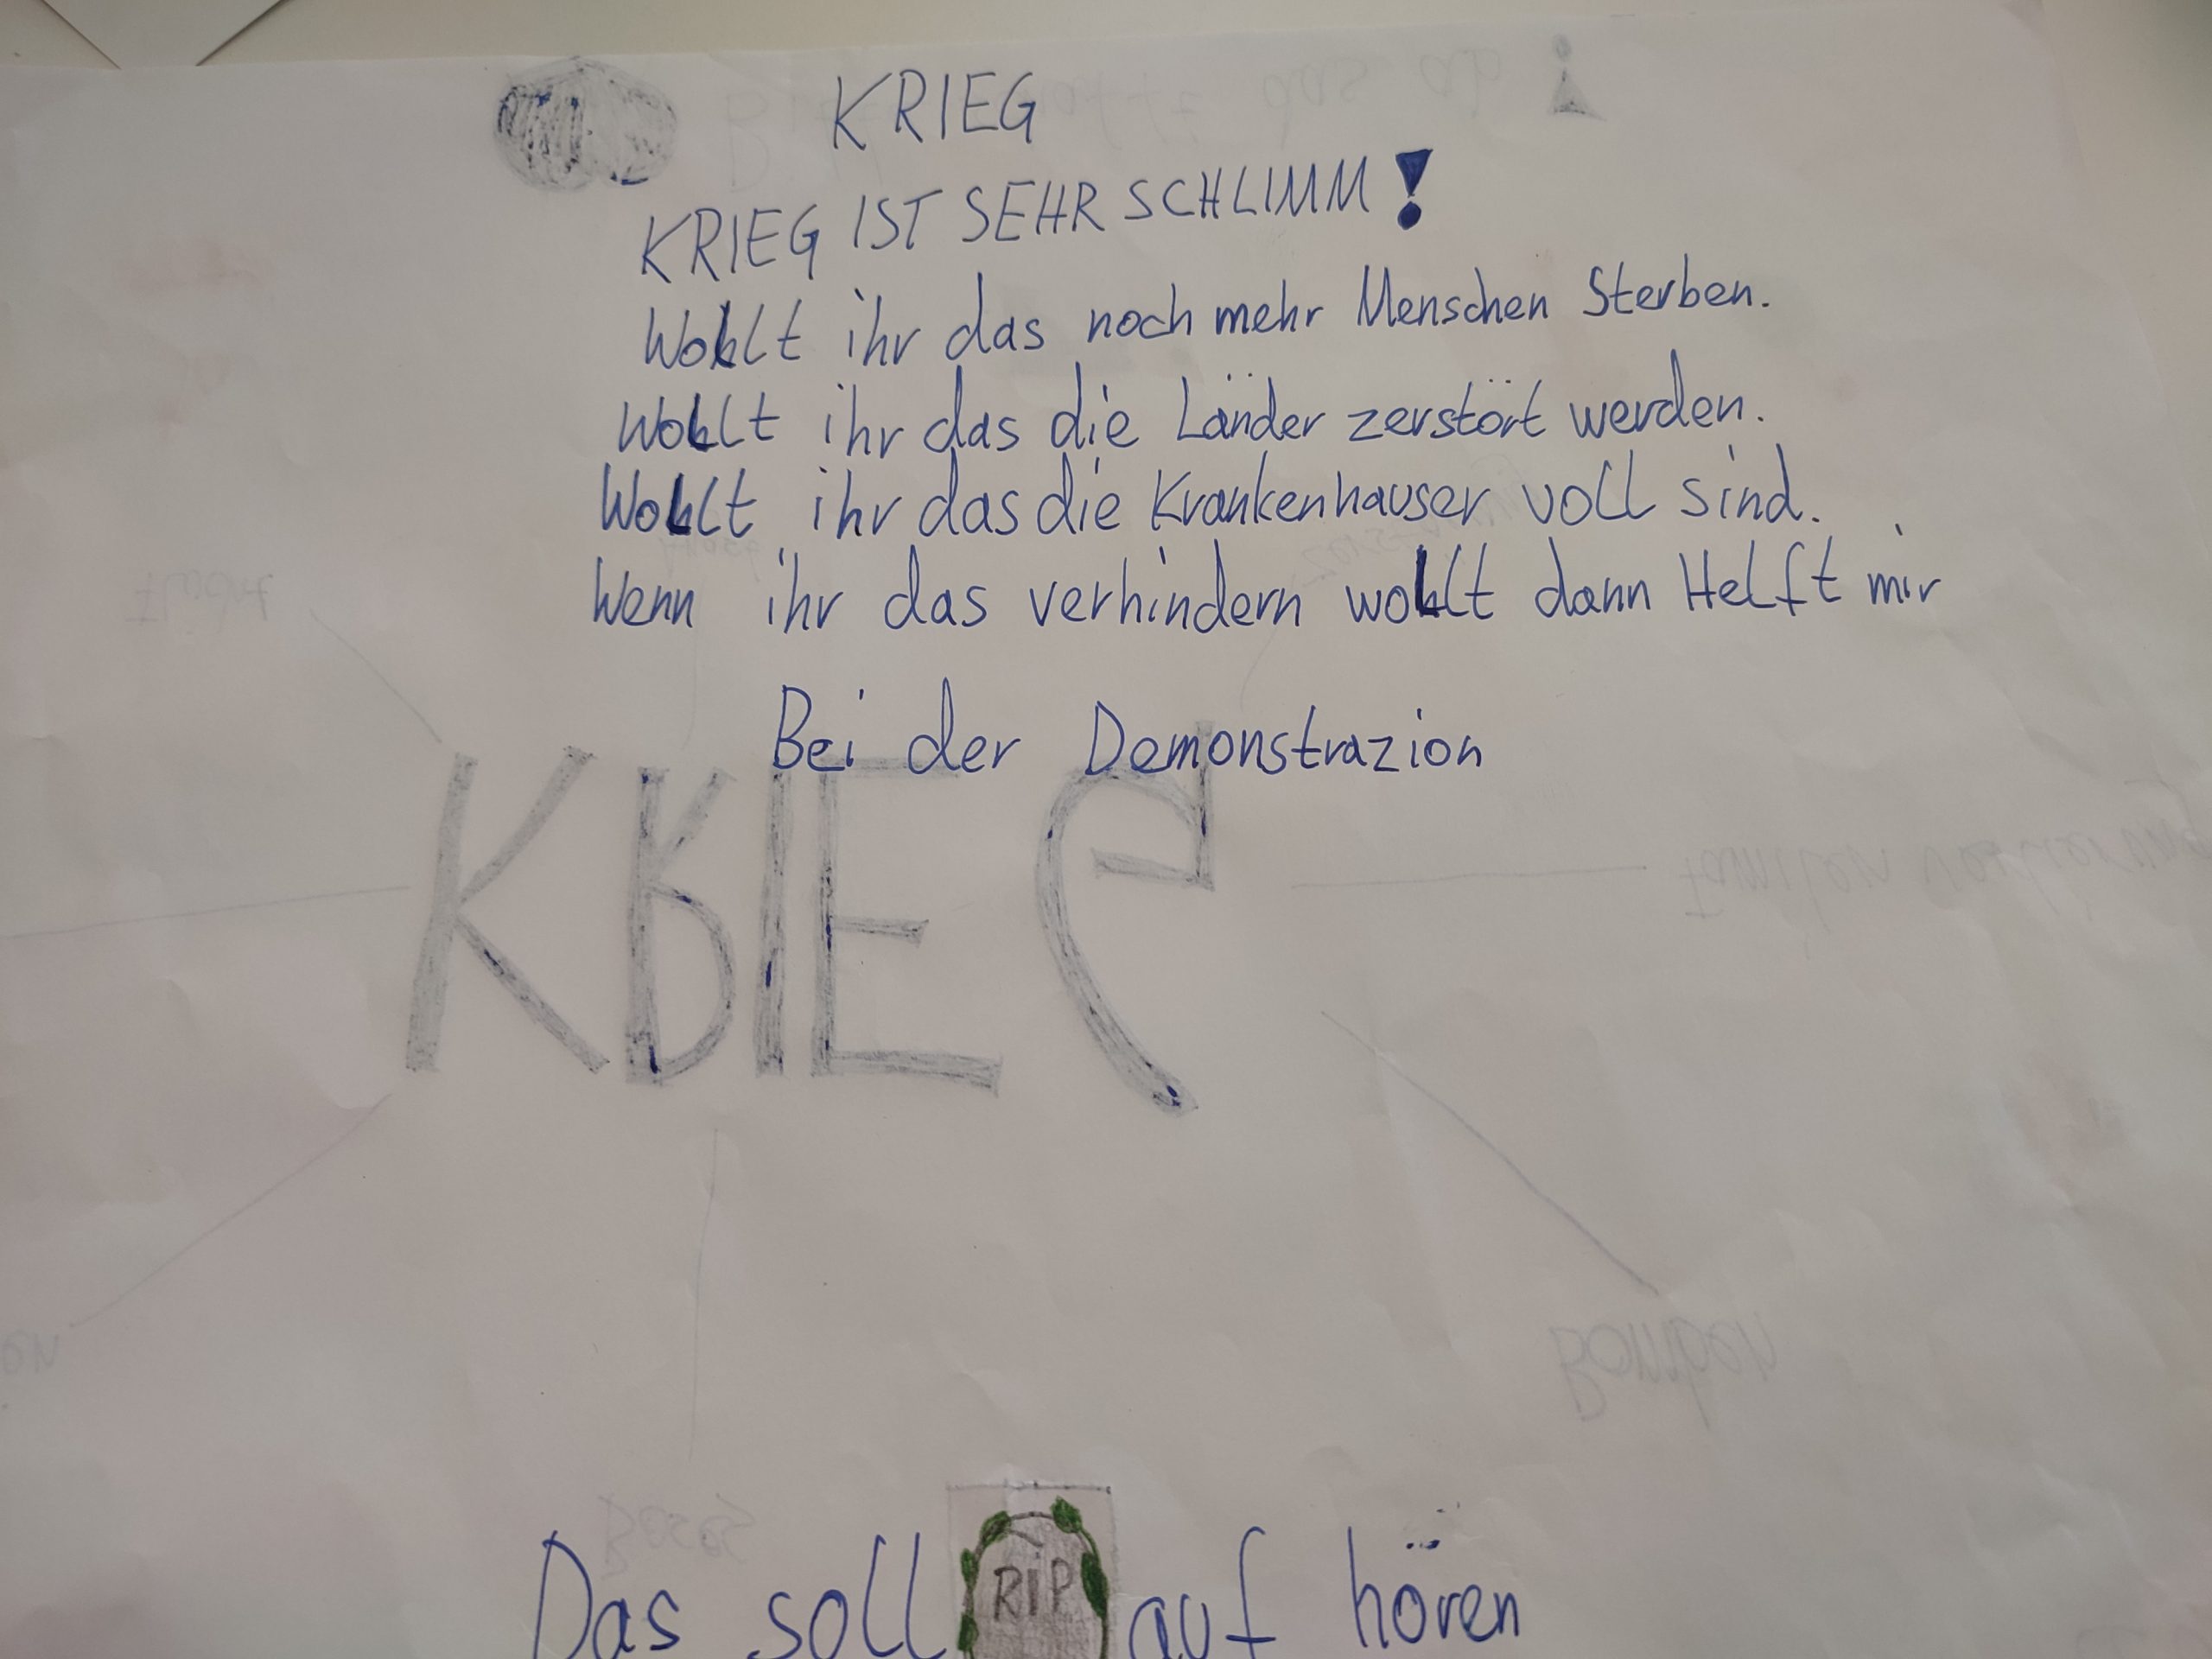 KRIEG
KRIEG IST SEHR SCHLIMM!
Wollt ihr das noch mehr Menschen Sterben.
Wollt ihr das die Länder zerstört werden.
Wollt ihr das die Krankenhauser voll sind.
Wenn ihr das verhindern wollt dann Helft mir
Bei der Demonstrazion
KRIEG
Bomben
Das soll auf hören
RIP